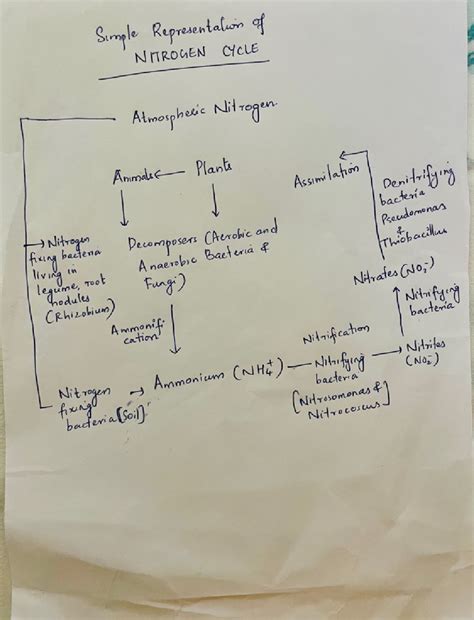 Simple Representation of
NITROGEN CYCLE
Atmospheric Nitrogen.
Animals ← Plants
Assimilation
Denitrifying
bacteria
Pseudomonas
&
Thiobacillus
→ Nitrogen
fixing bacteria
living in
legume, root
nodules
(Rhizobium)
Decomposers (Aerobic and
Anaerobic Bacteria &
Fungi)
Nitrates (NO3-)
Ammonifi
cation
Nitrifying
bacteria
Nitrification
Nitrogen
fixing
bacteria [Soil]
→ Ammonium (NH4+) — Nitrifying → Nitrites
bacteria
(NO2-)
[Nitrosomonas &
Nitrococcus]